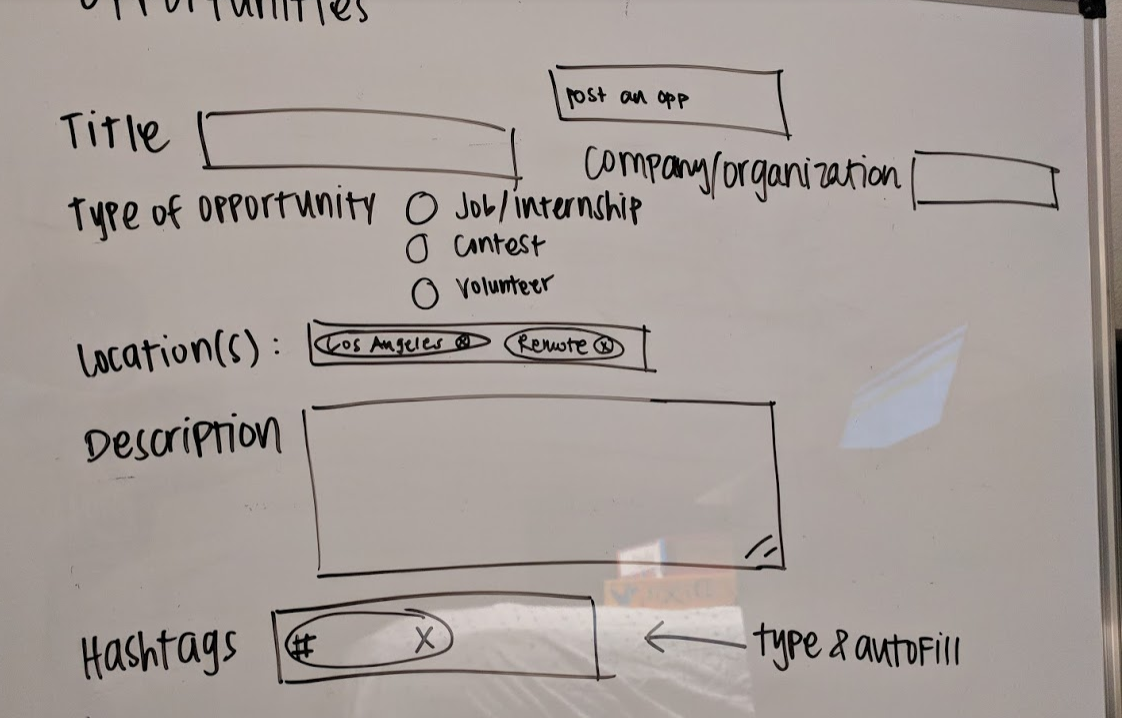 opportunities
post an opp
Title
Company/organization
Type of opportunity
Job/internship
Contest
Volunteer
Location(s):
Los Angeles x
Remote x
Description
Hashtags
# X
← type & autofill